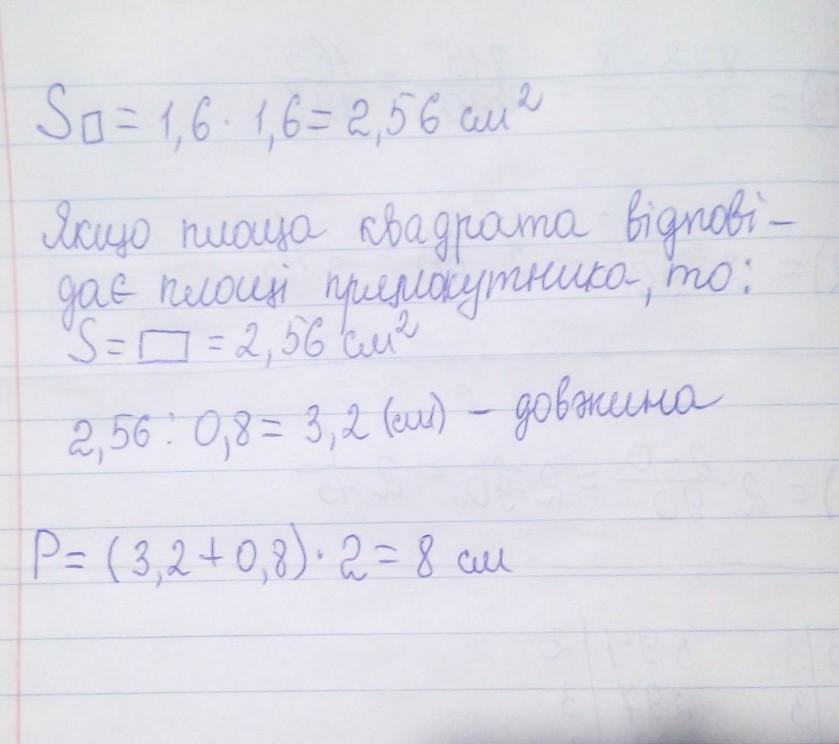 S□ = 1,6 · 1,6 = 2,56 см²
Якщо площа квадрата відпові-
дає площі прямокутника, то:
S = ▭ = 2,56 см²
2,56 : 0,8 = 3,2 (см) – довжина
P = (3,2 + 0,8) · 2 = 8 см